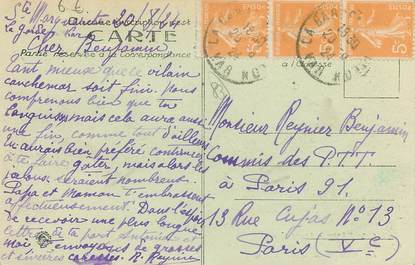 6 €
Ste Marguerite
la Garde
Aucune inscription
CARTE
Cher Benjamin
Partie réservée à la correspondance
Tant mieux que ce vilain
cauchemar soit fini. Nous
comprenons bien que tu
languisses mais cela aura aussi
une fin, comme tout d'ailleurs
Tu aurais bien préféré continuer
à te faire gâter, mais alors les
jaloux seraient nombreux.
Papa et maman t'embrassent
affectueusement. Dans l'espoir
de recevoir une plus longue
lettre de ta part
moi envoyons de grosses
et sincères caresses. R. Reynier
LA GARDE
VAR
5c
5c
5c
Monsieur Reynier Benjamin
Commis des P.T.T.
à Paris 91.
13 Rue Cujas N° 13
Paris (Ve)